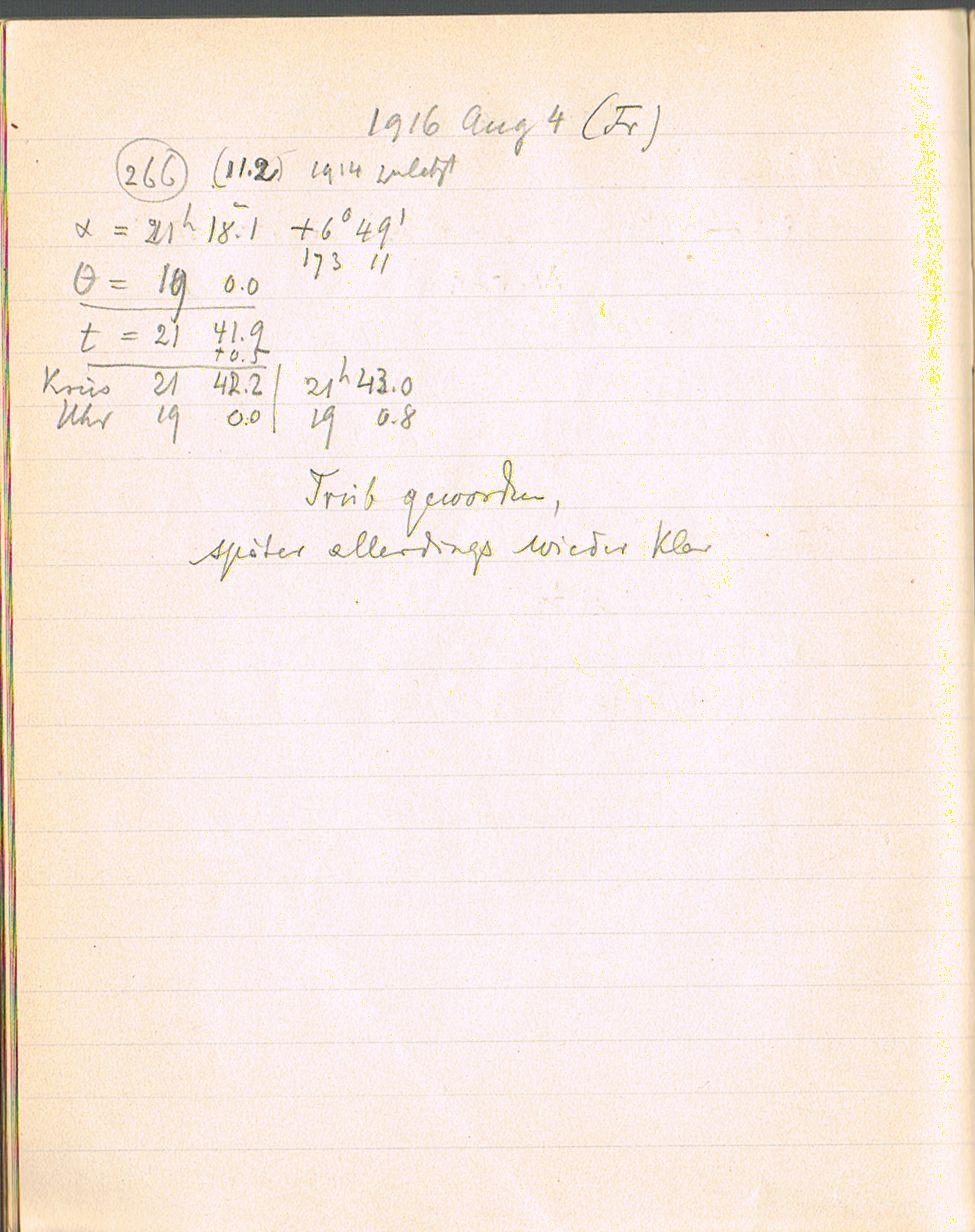 1916 Aug 4 (Fr)
266 (11.2) 1914 zuletzt
α = 21h 18.1 +6° 49'
173 11
θ = 19 0.0
t = 21 41.9
+0.5
Kreis 21 42.2 | 21h 43.0
Uhr 19 0.0 | 19 0.8
Trüb geworden,
später allerdings wieder klar